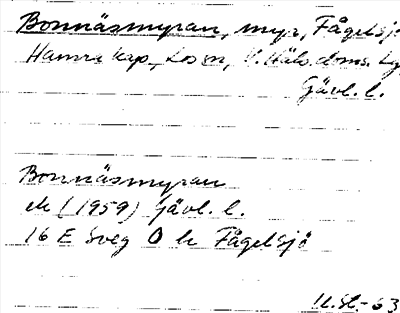 Bonnäsmyran, myr, Fågelsjö
Hamra kap., Los sn, V. Häls. doms. tg
Gävl. l.
Bonnäsmyran
ek (1959) Gävl. l.
16 E Sveg 0 h Fågelsjö
U.St.-63